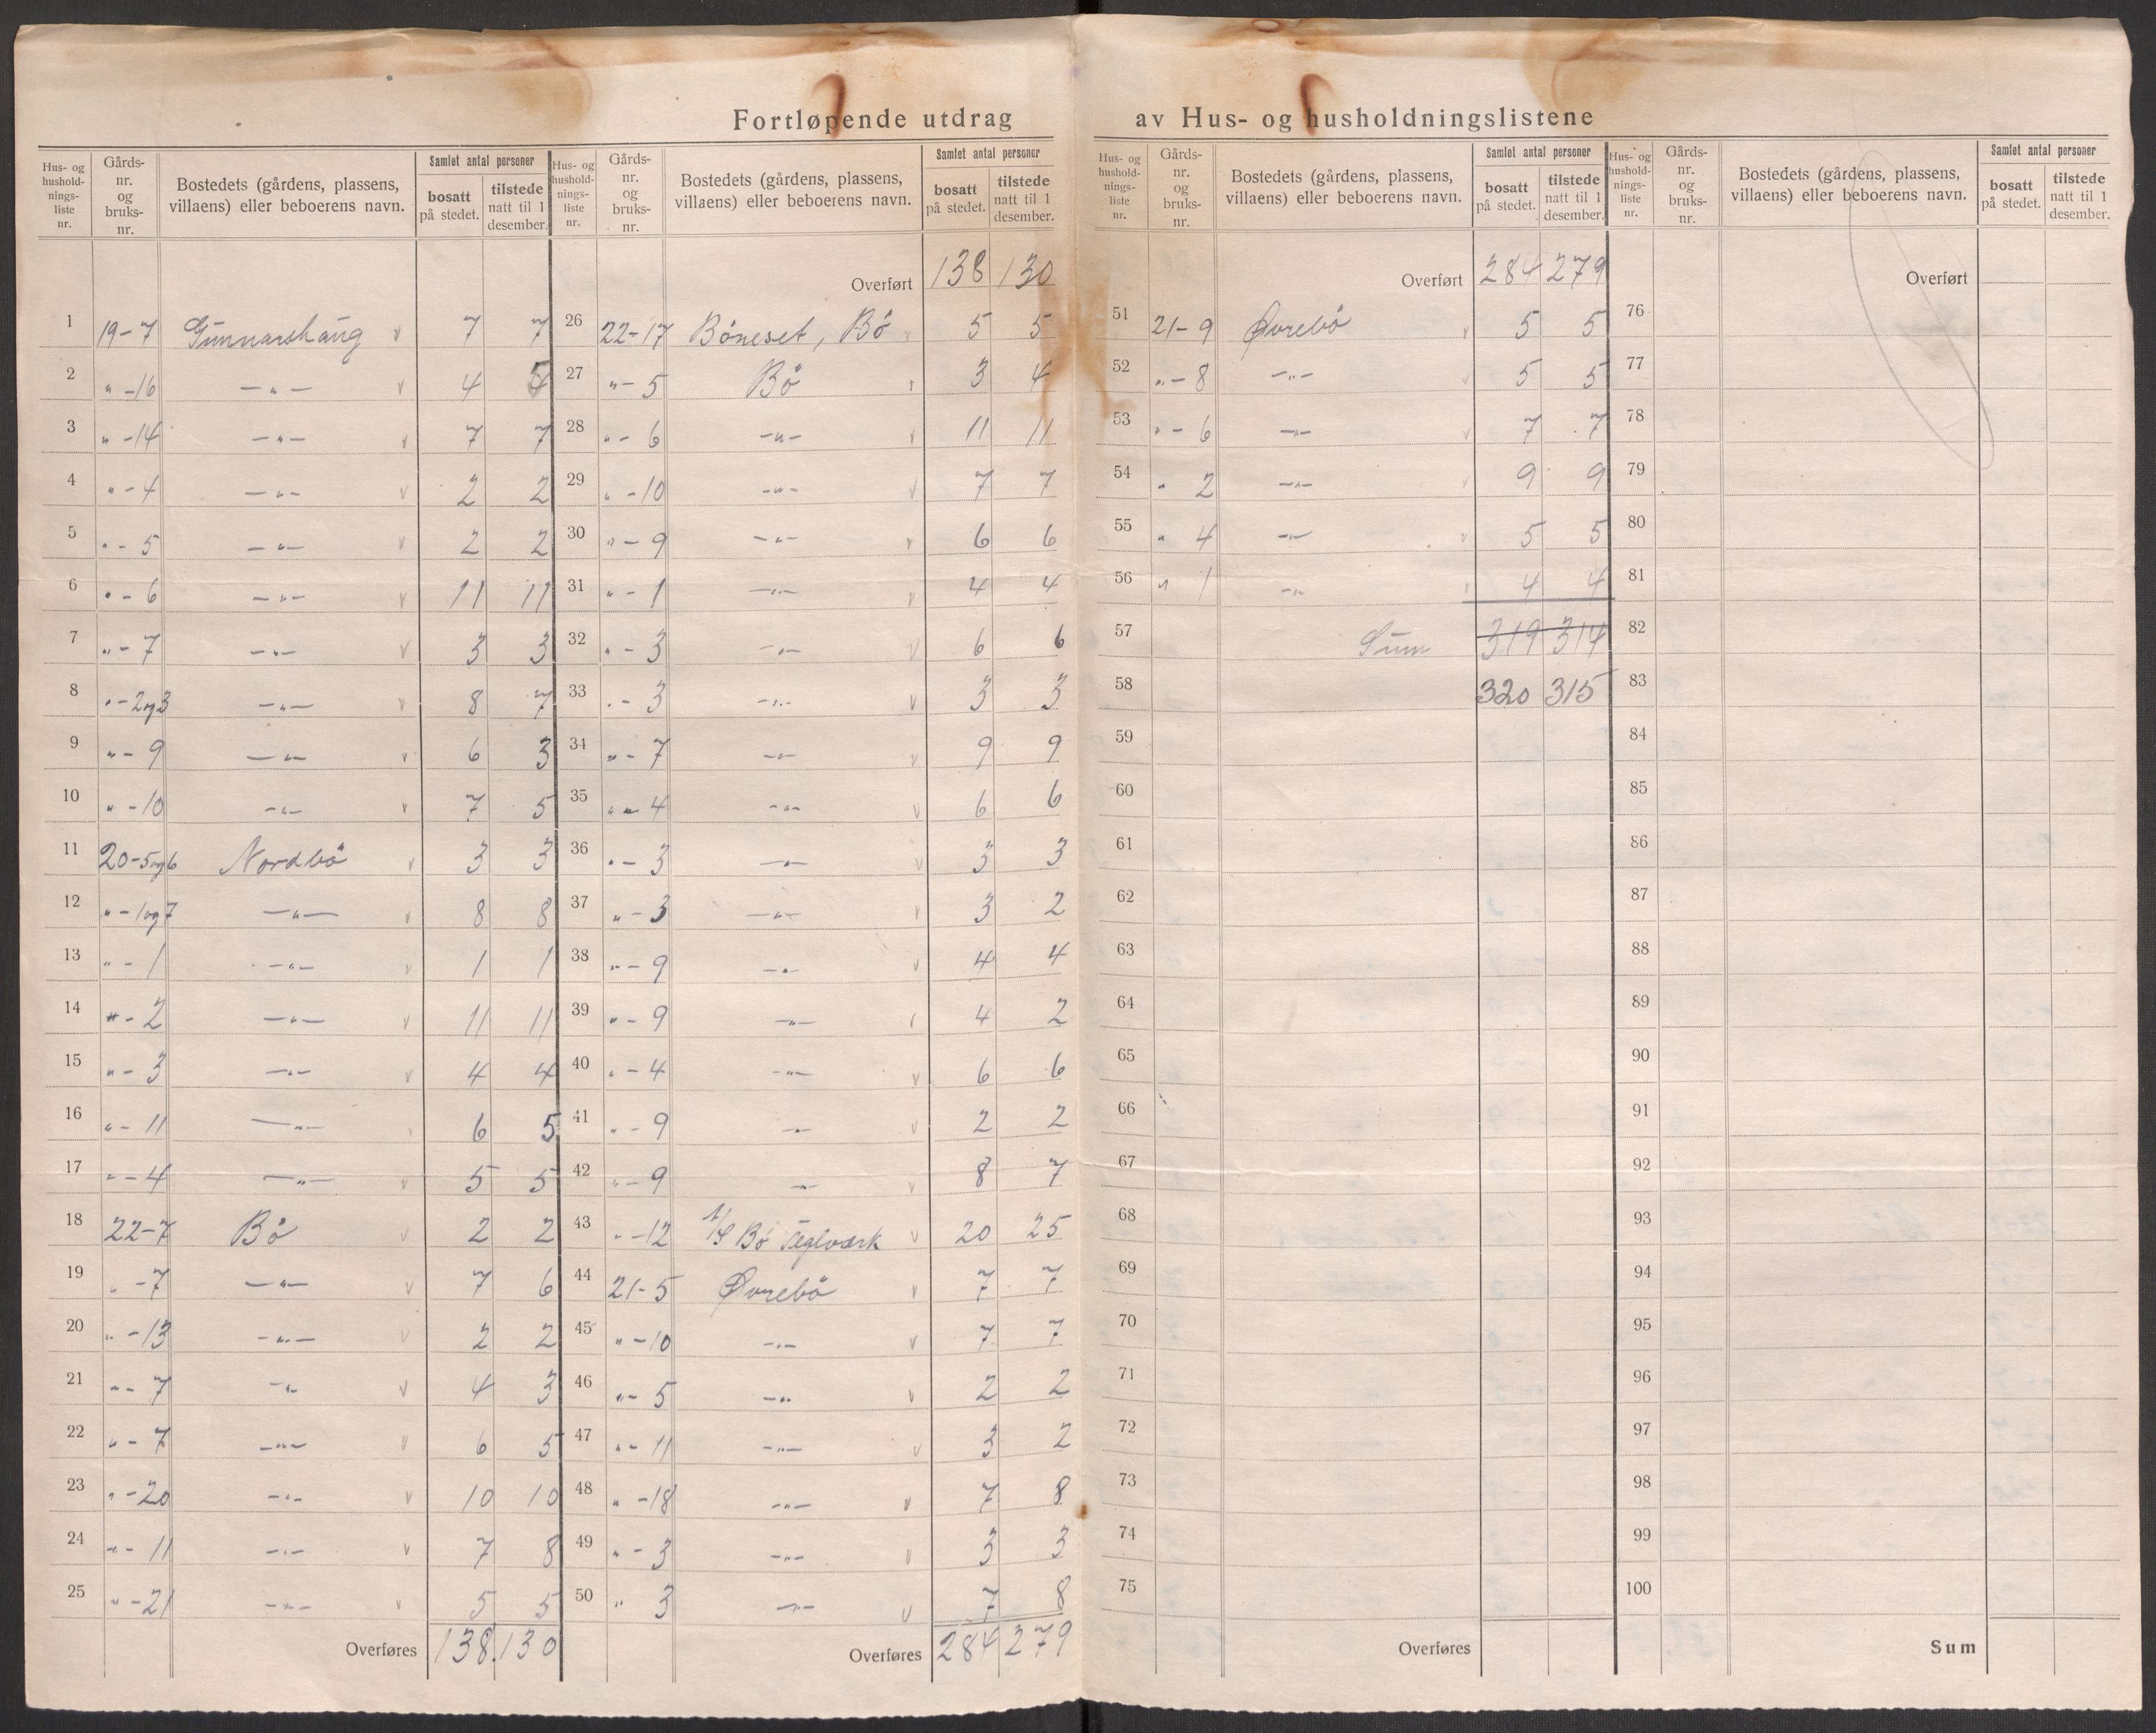 Fortløpende utdrag av Hus- og husholdningslistene
Hus- og husholdnings- liste nr. | Gårds- nr. og bruks- nr. | Bostedets (gårdens, plassens, villaens) eller beboerens navn. | Samlet antal personer | bosatt på stedet. | tilstede natt til 1 desember.
1 19-7 Gunnarshaug v 7 7
2 " -16 —"— v 4 5
3 " -14 —"— v 7 7
4 " -4 —"— v 2 2
5 " - 5 —"— v 2 2
6 " - 6 —"— v 11 11
7 " - 7 —"— v 3 3
8 " - 2og3 —"— v 8 7
9 " - 9 —"— v 6 3
10 " -10 —"— v 7 5
11 20-5og6 Nordbö v 3 3
12 " - 1og7 —"— v 8 8
13 " - 1 —"— v 1 1
14 " - 2 —"— v 11 11
15 " - 3 —"— v 4 4
16 " - 11 —"— v 6 5
17 " - 4 —"— v 5 5
18 22-7 Bö v 2 2
19 " -7 —"— v 7 6
20 " -13 —"— v 2 2
21 " - 7 —"— v 4 3
22 " - 7 —"— v 6 5
23 " -20 —"— v 10 10
24 " - 11 —"— v 7 8
25 " -21 —"— v 5 5
Overføres 138 130
Hus- og husholdnings- liste nr. | Gårds- nr. og bruks- nr. | Bostedets (gårdens, plassens, villaens) eller beboerens navn. | Samlet antal personer | bosatt på stedet. | tilstede natt til 1 desember.
Overført 138 130
26 22-17 Böneset, Bö v 5 5
27 " - 5 Bö v 3 4
28 " - 6 —"— v 11 11
29 " -10 —"— v 7 7
30 " - 9 —"— v 6 6
31 " - 1 —"— v 4 4
32 " - 3 —"— v 6 6
33 " - 3 —"— v 3 3
34 " - 7 —"— v 9 9
35 " - 4 —"— v 6 6
36 " - 3 —"— v 3 3
37 " - 3 —"— v 3 2
38 " - 9 —"— v 4 4
39 " - 9 —"— v 4 2
40 " - 4 —"— v 6 6
41 " - 9 —"— v 2 2
42 " - 9 —"— v 8 7
43 " -12 A/S Bö Teglværk v 20 25
44 21-5 Øvrebö v 7 7
45 " -10 —"— v 7 7
46 " - 5 —"— v 2 2
47 " - 11 —"— v 3 2
48 " -18 —"— v 7 8
49 " - 3 —"— v 3 3
50 " 3 —"— v 7 8
Overføres 284 279
Hus- og husholdnings- liste nr. | Gårds- nr. og bruks- nr. | Bostedets (gårdens, plassens, villaens) eller beboerens navn. | Samlet antal personer | bosatt på stedet. | tilstede natt til 1 desember.
Overført 284 279
51 21-9 Øvrebö v 5 5
52 " - 8 —"— v 5 5
53 " - 6 —"— v 7 7
54 " 2 —"— v 9 9
55 " 4 —"— v 5 5
56 " 1 —"— v 4 4
57 Sum 319 314
58 320 315
59
60
61
62
63
64
65
66
67
68
69
70
71
72
73
74
75
Overføres
Hus- og husholdnings- liste nr. | Gårds- nr. og bruks- nr. | Bostedets (gårdens, plassens, villaens) eller beboerens navn. | Samlet antal personer | bosatt på stedet. | tilstede natt til 1 desember.
Overført
76
77
78
79
80
81
82
83
84
85
86
87
88
89
90
91
92
93
94
95
96
97
98
99
100
Sum